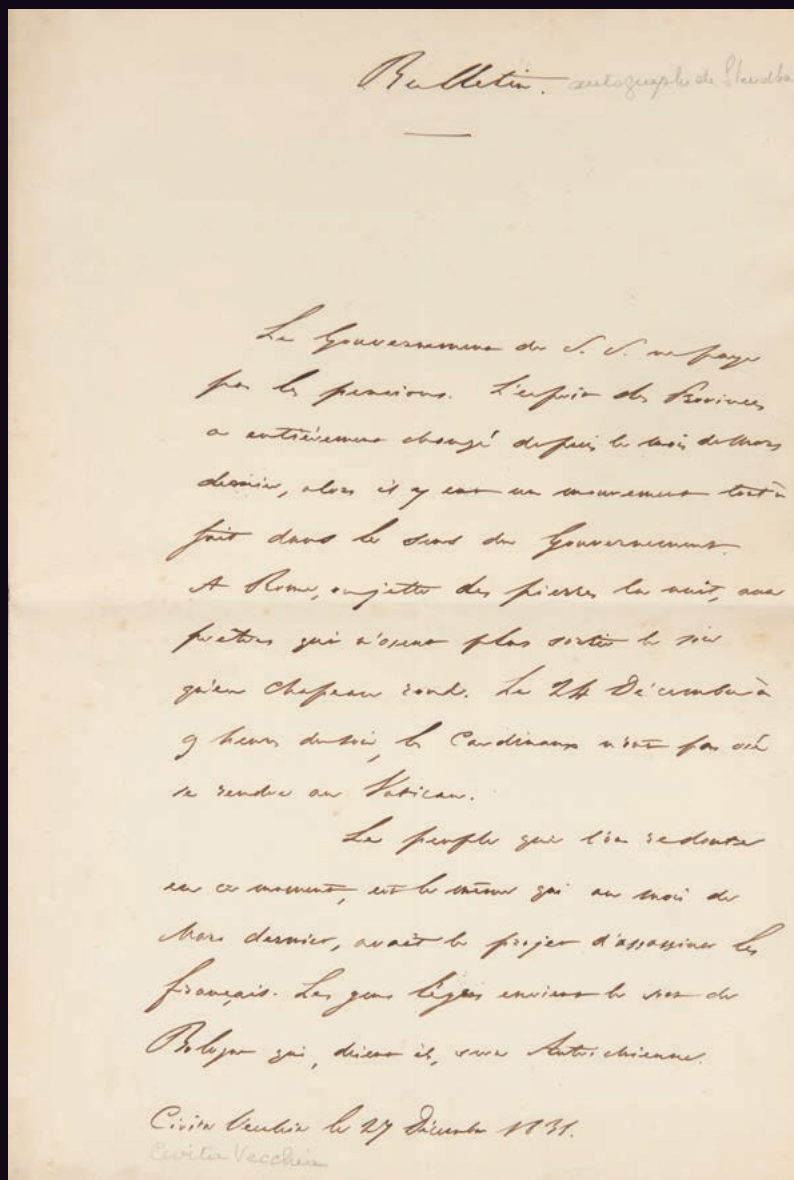 Bulletin. autographe de Stendha
Le Gouvernement de S. S. ne paye
pas les pensions. L'esprit des Provinces
a entièrement changé depuis le mois de Mars
dernier, alors il y eut un mouvement tout à
fait dans le sens du Gouvernement.
A Rome, on jette des pierres la nuit, aux
prêtres qui n'osent plus sortir le soir
qu'en chapeau rond. Le 24 Décembre à
9 heures du soir, les Cardinaux n'ont pas osé
se rendre au Vatican.
Le peuple que l'on redoute
en ce moment, est le même qui au mois de
Mars dernier, avait le projet d'assassiner les
français. Les gens envient le sort de
Bologne qui, disent ils, sera Autrichienne.
Civita Vecchia le 27 Décembre 1831.
Civita Vecchia